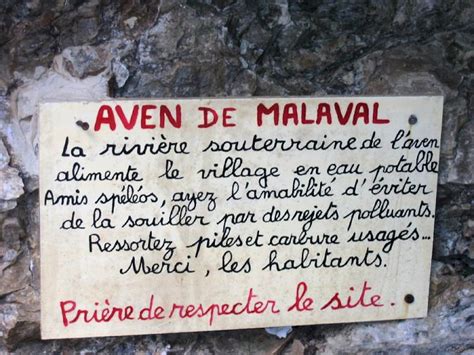 AVEN DE MALAVAL
La rivière souterraine de l'aven
alimente le village en eau potable
Amis spéléos, ayez l'amabilité d'éviter
de la souiller par des rejets polluants.
Ressortez piles et carbure usagés...
Merci, les habitants.
Prière de respecter le site.